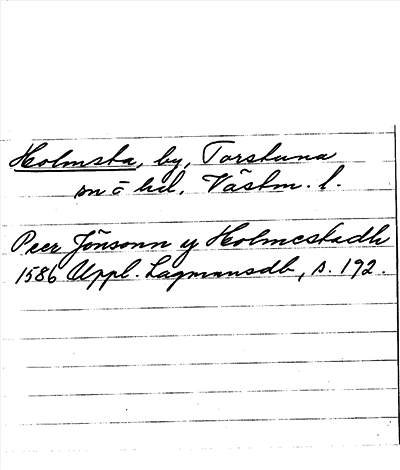 Holmsta, by, Torstuna
sn o hd, Västm. l.
Peer Jönsonn y Holmestadh
1586 Uppl. Lagmansdb, s. 192.